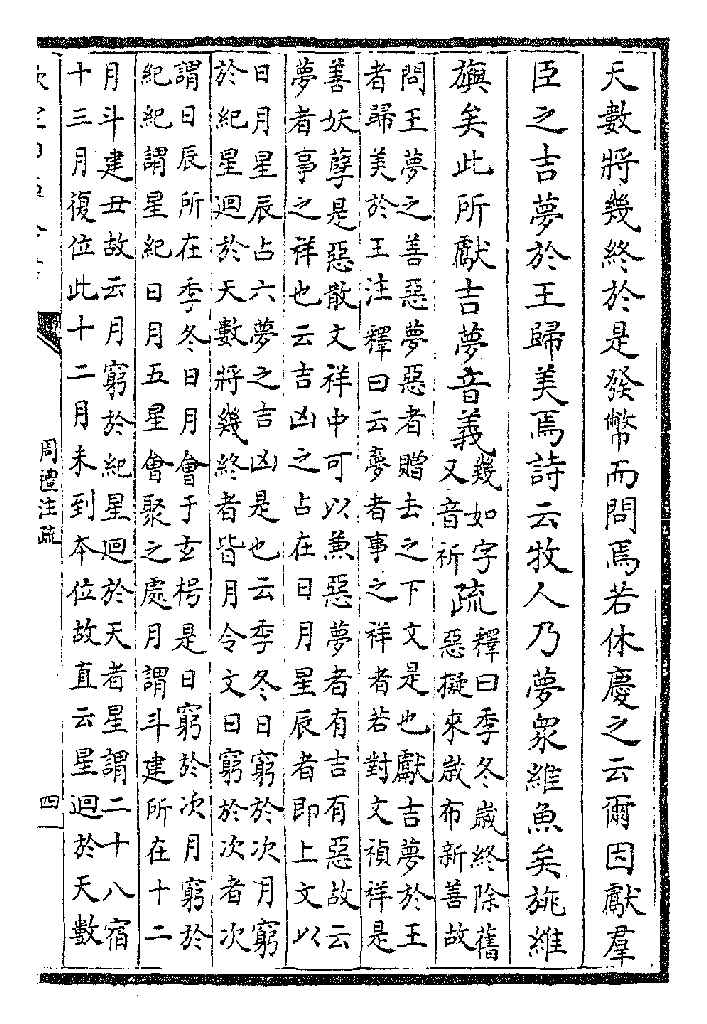 天數將幾終於是發幣而問焉若休慶之云爾因獻羣
臣之吉夢於王歸美焉詩云牧人乃夢衆維魚矣旐維
旟矣此所獻吉夢音義幾如字又音祈疏釋曰季冬歲終除舊惡擬來歲布新善故
問王夢之善惡夢惡者贈去之下文是也獻吉夢於王
者歸美於王注釋曰云夢者事之祥者若對文禎祥是
善妖孽是惡散文祥中可以兼惡夢者有吉有惡故云
夢者事之祥也云吉凶之占在日月星辰者即上文以
日月星辰占六夢之吉凶是也云季冬日窮於次月窮
於紀星迴於天數將幾終者皆月令文日窮於次者次
謂日辰所在季冬日月會于玄枵是日窮於次月窮於
紀紀謂星紀日月五星會聚之處月謂斗建所在十二
月斗建丑故云月窮於紀星迴於天者星謂二十八宿
十三月復位此十二月未到本位故直云星迴於天數
周禮注疏
四一